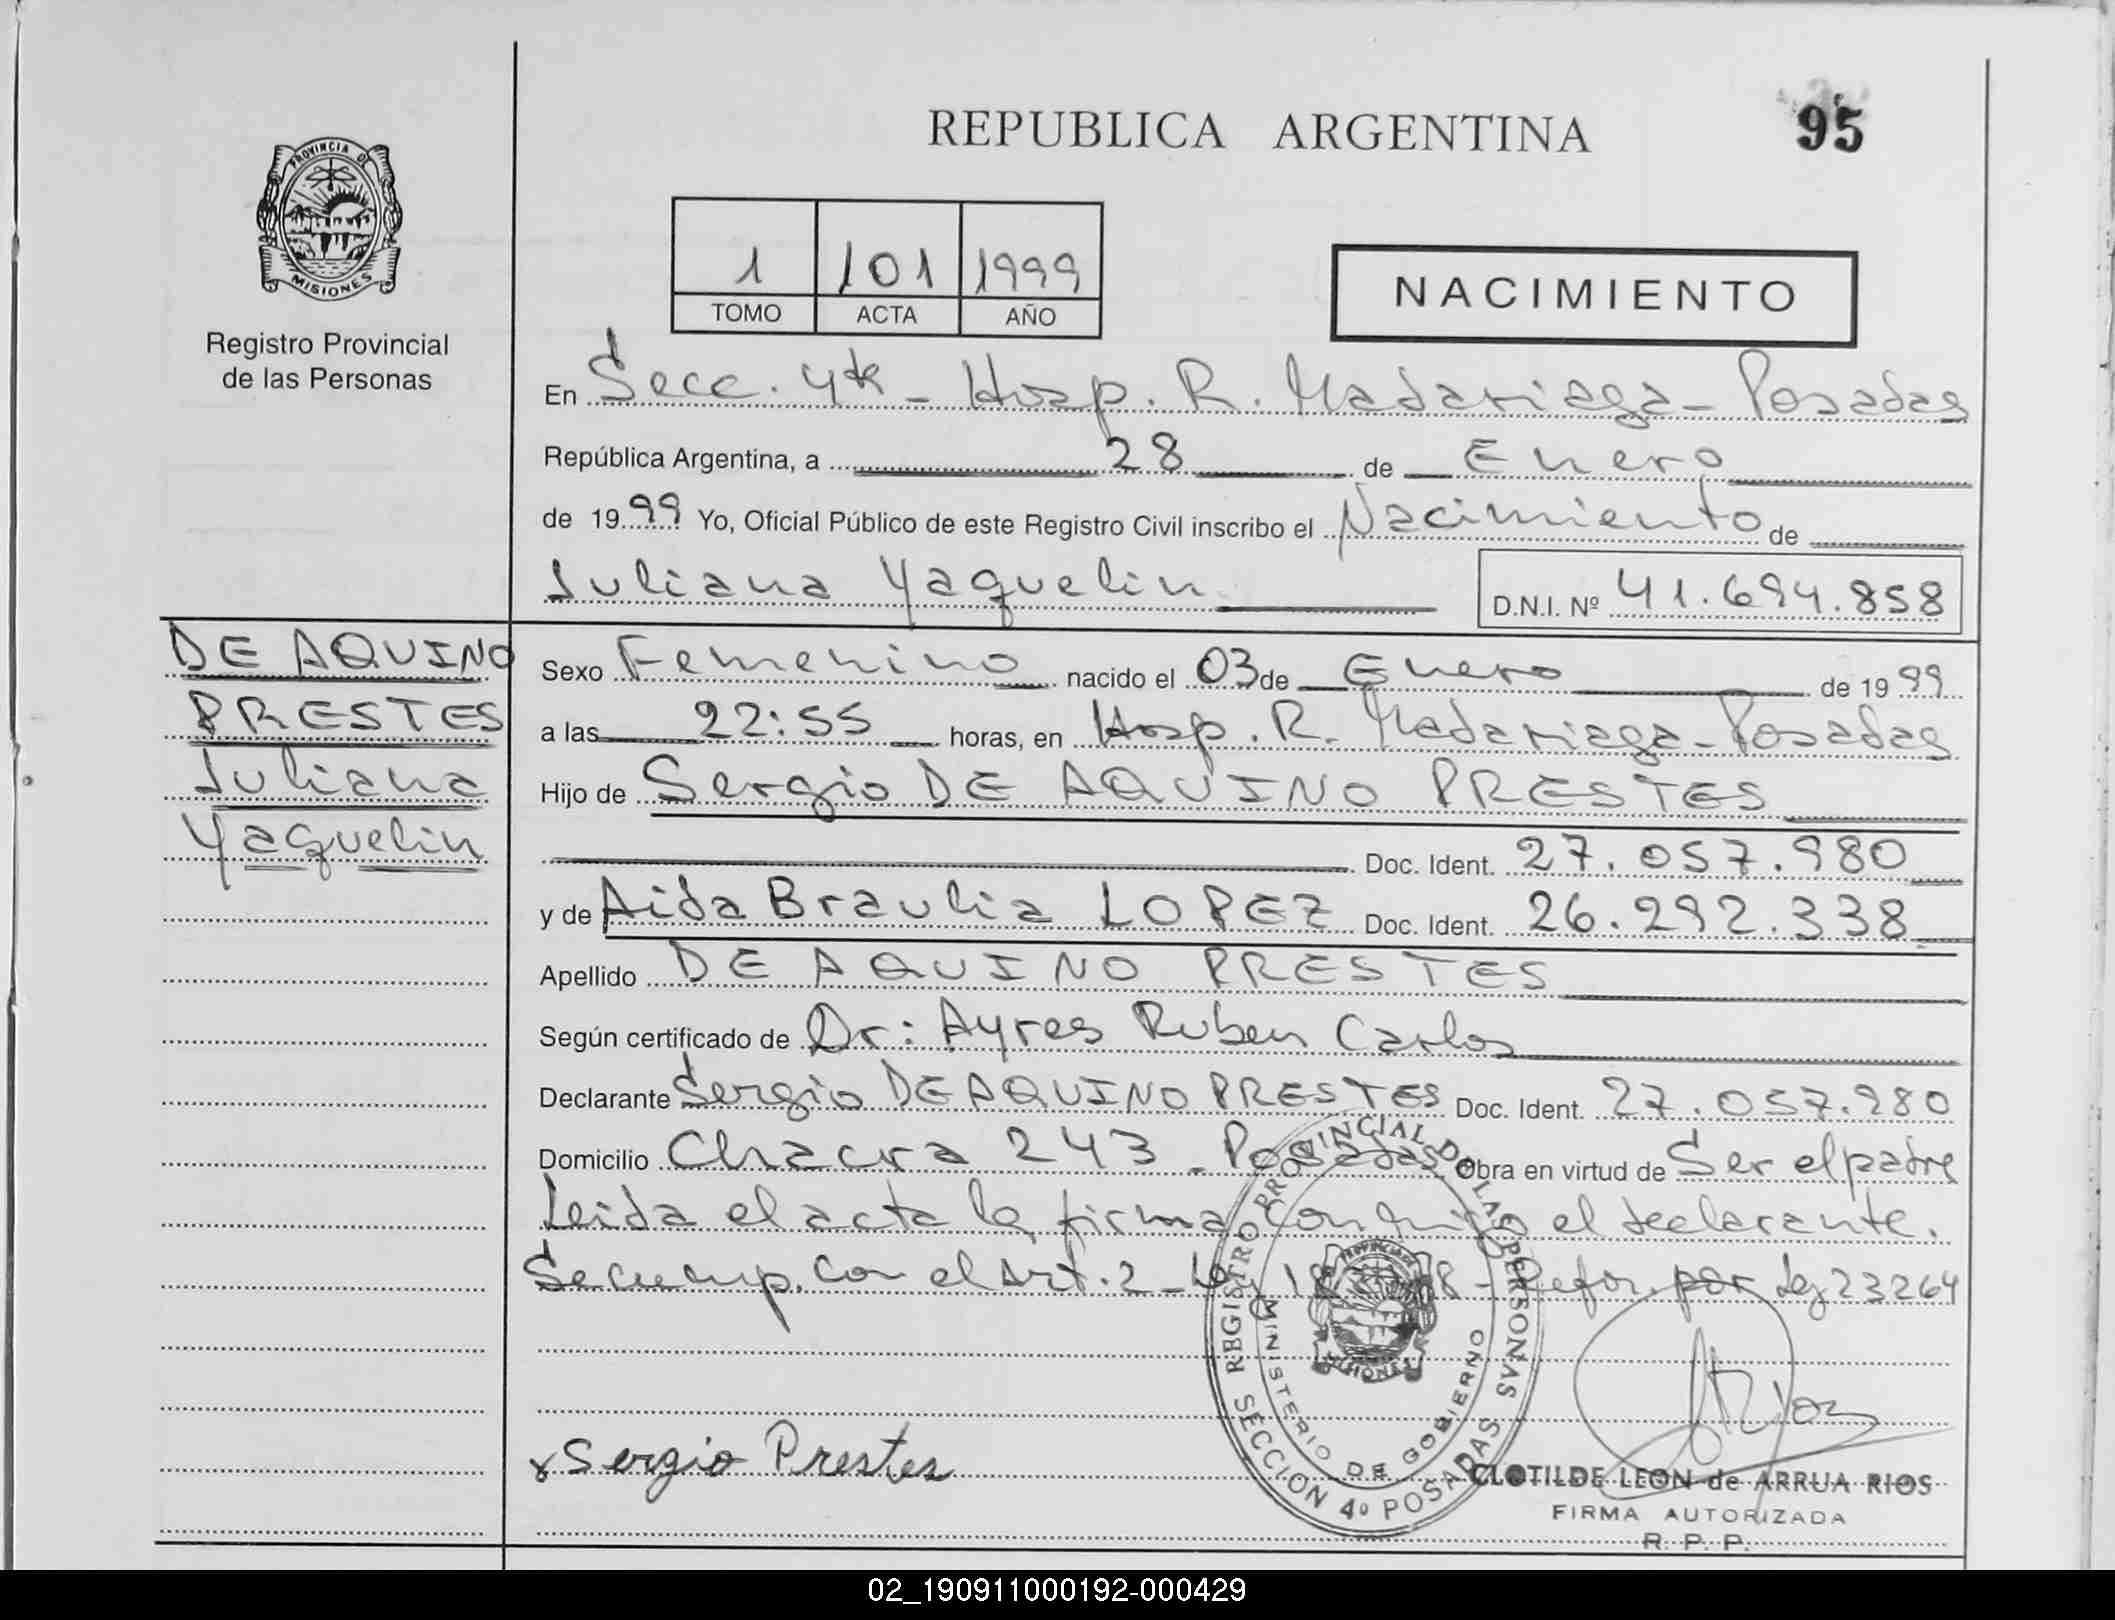 REPUBLICA ARGENTINA
95
PROVINCIA DE
MISIONES
Registro Provincial
de las Personas
1 101 1999
TOMO ACTA AÑO
NACIMIENTO
En Secc. 4ta - Hosp. R. Madariaga - Posadas
República Argentina, a 28 de Enero
de 1999 Yo, Oficial Público de este Registro Civil inscribo el Nacimiento de
Juliana Yaquelin D.N.I. Nº 41.694.858
DE AQUINO
PRESTES
Juliana
Yaquelin
Sexo Femenino nacido el 03 de Enero de 1999
a las 22:55 horas, en Hosp. R. Madariaga - Posadas
Hijo de Sergio DE AQUINO PRESTES
Doc. Ident. 27.057.980
y de Aida Braulia LOPEZ Doc. Ident. 26.292.338
Apellido DE AQUINO PRESTES
Según certificado de Dr: Ayres Ruben Carlos
Declarante Sergio DE AQUINO PRESTES Doc. Ident. 27.057.980
Domicilio Chacra 243 - Posadas Obra en virtud de Ser el padre
Leida el acta la firma conmigo el declarante.
Se cump. con el Art. 2 - Ley - Refor. por Ley 23264
REGISTRO PROVINCIAL DE LAS PERSONAS
MINISTERIO DE GOBIERNO
SECCION 4º POSADAS
x Sergio Prestes
CLOTILDE LEON de ARRUA RIOS
FIRMA AUTORIZADA
R. P. P.
02_190911000192-000429